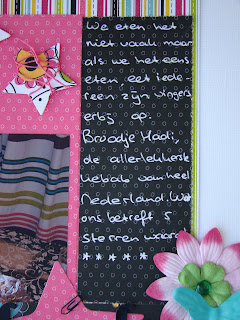 We eten het
niet vaak maar
als we het eens
eten, eet iede-
reen zijn vingers
erbij op.
Broodje Hadi,
de allerlekkerste
kebab van heel
Nederland. Wat
ons betreft 5
sterren waard
* * * * *